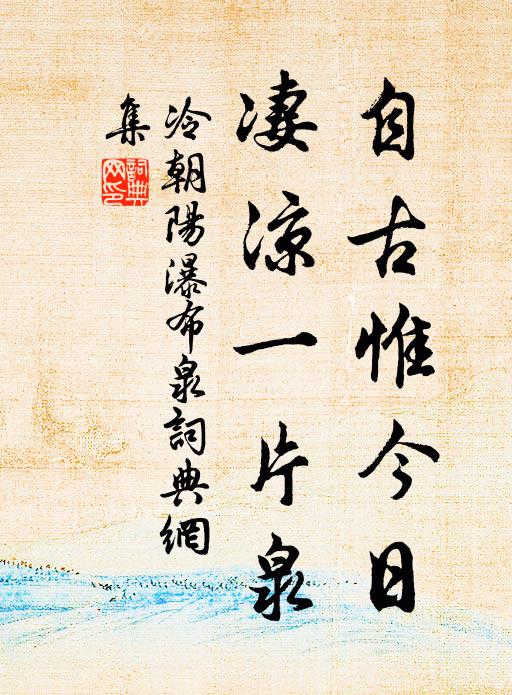 自古惟今日
凄涼一片泉
冷朝陽瀑布泉詞典網
集
詞典網印